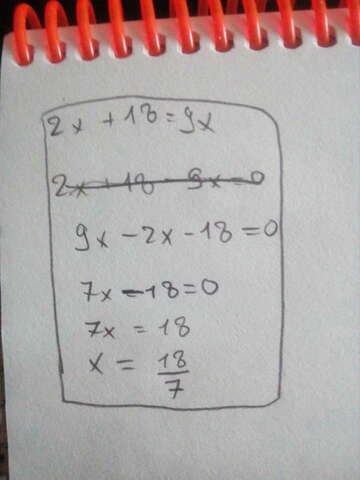 2x + 18 = 9x
2x + 18 - 9x = 0
9x - 2x - 18 = 0
7x - 18 = 0
7x = 18
x = 18/7